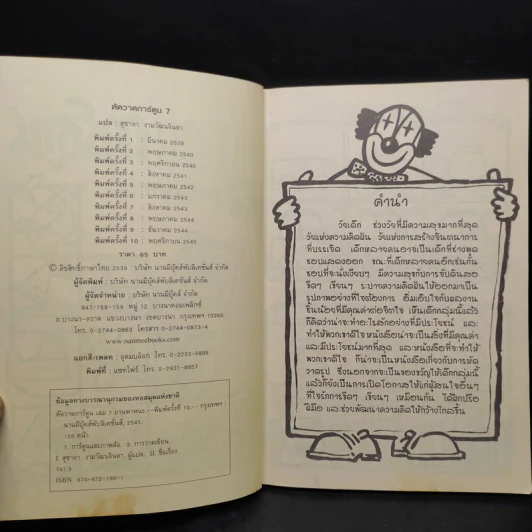 หัดวาดการ์ตูน 7
แปล : สุชาดา งามวัฒนจินดา
พิมพ์ครั้งที่ 1 : มีนาคม 2539
พิมพ์ครั้งที่ 2 : พฤษภาคม 2540
พิมพ์ครั้งที่ 3 : พฤศจิกายน 2540
พิมพ์ครั้งที่ 4 : สิงหาคม 2541
พิมพ์ครั้งที่ 5 : พฤษภาคม 2542
พิมพ์ครั้งที่ 6 : มกราคม 2543
พิมพ์ครั้งที่ 7 : สิงหาคม 2543
พิมพ์ครั้งที่ 8 : พฤษภาคม 2544
พิมพ์ครั้งที่ 9 : ธันวาคม 2544
พิมพ์ครั้งที่ 10 : พฤศจิกายน 2545
ราคา 65 บาท
© ลิขสิทธิ์ภาษาไทย 2539 : บริษัท นานมีบุ๊คส์พับลิเคชั่นส์ จำกัด
ผู้จัดพิมพ์ : บริษัท นานมีบุ๊คส์พับลิเคชั่นส์ จำกัด
ผู้จัดจำหน่าย : บริษัท นานมีบุ๊คส์ จำกัด
947/158-159 หมู่ 12 บางนาคอมเพล็กซ์
ถ.บางนา-ตราด แขวงบางนา เขตบางนา กรุงเทพฯ 10260
โทร. 0-2744-0863 โทรสาร 0-2744-0873-4
www.nanmeebooks.com
แยกสี-เพลท : อุดมบล็อก โทร.
พิมพ์ที่ : แซทโฟร์ โทร.
ข้อมูลทางบรรณานุกรมของหอสมุดแห่งชาติ
หัดวาดการ์ตูน เล่ม 7 ยานพาหนะ.--พิมพ์ครั้งที่ 10.-- กรุงเทพฯ :
นานมีบุ๊คส์พับลิเคชั่นส์, 2545.
128 หน้า
1. การ์ตูนและภาพล้อ. 2. การวาดเขียน.
I. สุชาดา งามวัฒนจินดา, ผู้แปล. II. ชื่อเรื่อง.
741.5
ISBN 974-472-190-1
คำนำ
วัยเด็ก ช่วงวัยที่มีความสุขมากที่สุด
วัยแห่งความคิดฝัน วัยแห่งการสร้างจินตนาการ
ที่บรรเจิด เด็กหลายคนอาจเป็นเด็กที่ช่างพูด
ชอบแสดงออก ขณะที่เด็กหลายคนอีกเช่นกัน
ชอบที่จะนั่งเงียบๆ มีความสุขกับการจับดินสอ
ขีดๆ เขียนๆ ระบายความคิดฝันให้ออกมาเป็น
รูปภาพอย่างที่ใจต้องการ อิ่มเอิบใจกับผลงาน
ชิ้นน้อยที่มีคุณค่าต่อจิตใจ เห็นเด็กกลุ่มนี้แล้ว
ก็คิดว่าน่าจะทำอะไรสักอย่างที่มีประโยชน์ และ
ทำให้พวกเขาดีใจ หนังสือน่าจะเป็นสิ่งที่มีคุณค่า
และมีประโยชน์มากที่สุด และหนังสือที่จะทำให้
พวกเขาดีใจ ก็น่าจะเป็นหนังสือเกี่ยวกับการหัด
วาดรูป ซึ่งนอกจากจะเป็นของขวัญให้เด็กกลุ่มนี้
แล้วก็ยังเป็นการเปิดโอกาสให้แก่ผู้สนใจอื่นๆ
ที่ใจรักการขีดๆ เขียนๆ เหมือนกัน ได้ฝึกปรือ
ฝีมือ และช่วยพัฒนาความคิดให้กว้างไกลขึ้น